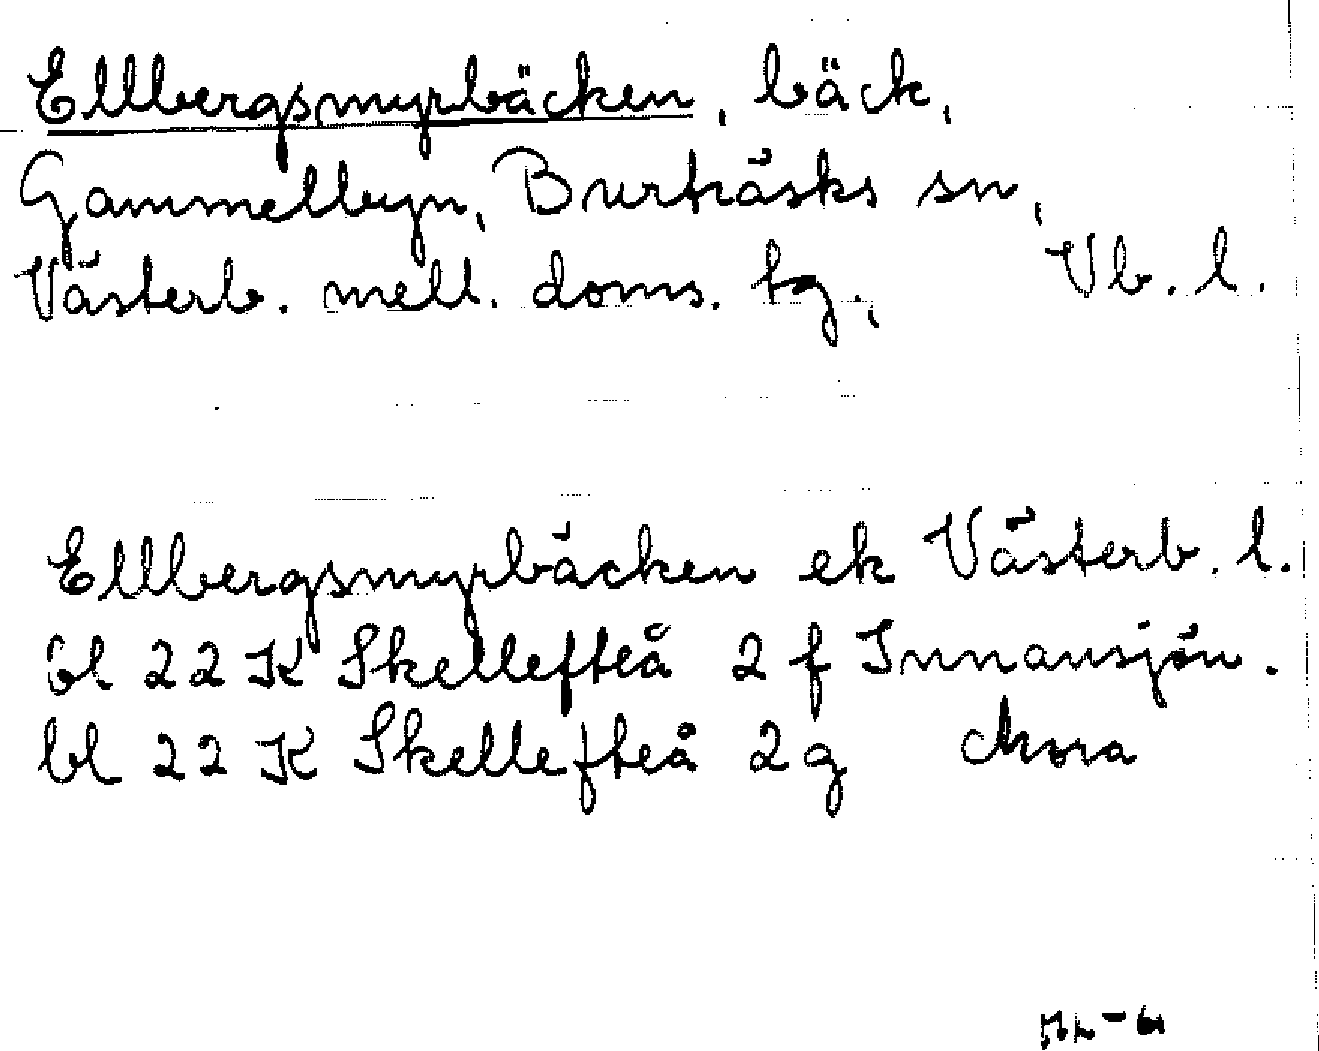 Ellbergsmyrbäcken, bäck,
Gammelbyn, Burträsks sn,
Västerb. mell. doms. tg., Vb. l.
Ellbergsmyrbäcken ek Västerb. l.
bl 22 K Skellefteå 2 f Innansjön.
bl 22 K Skellefteå 2g Mora